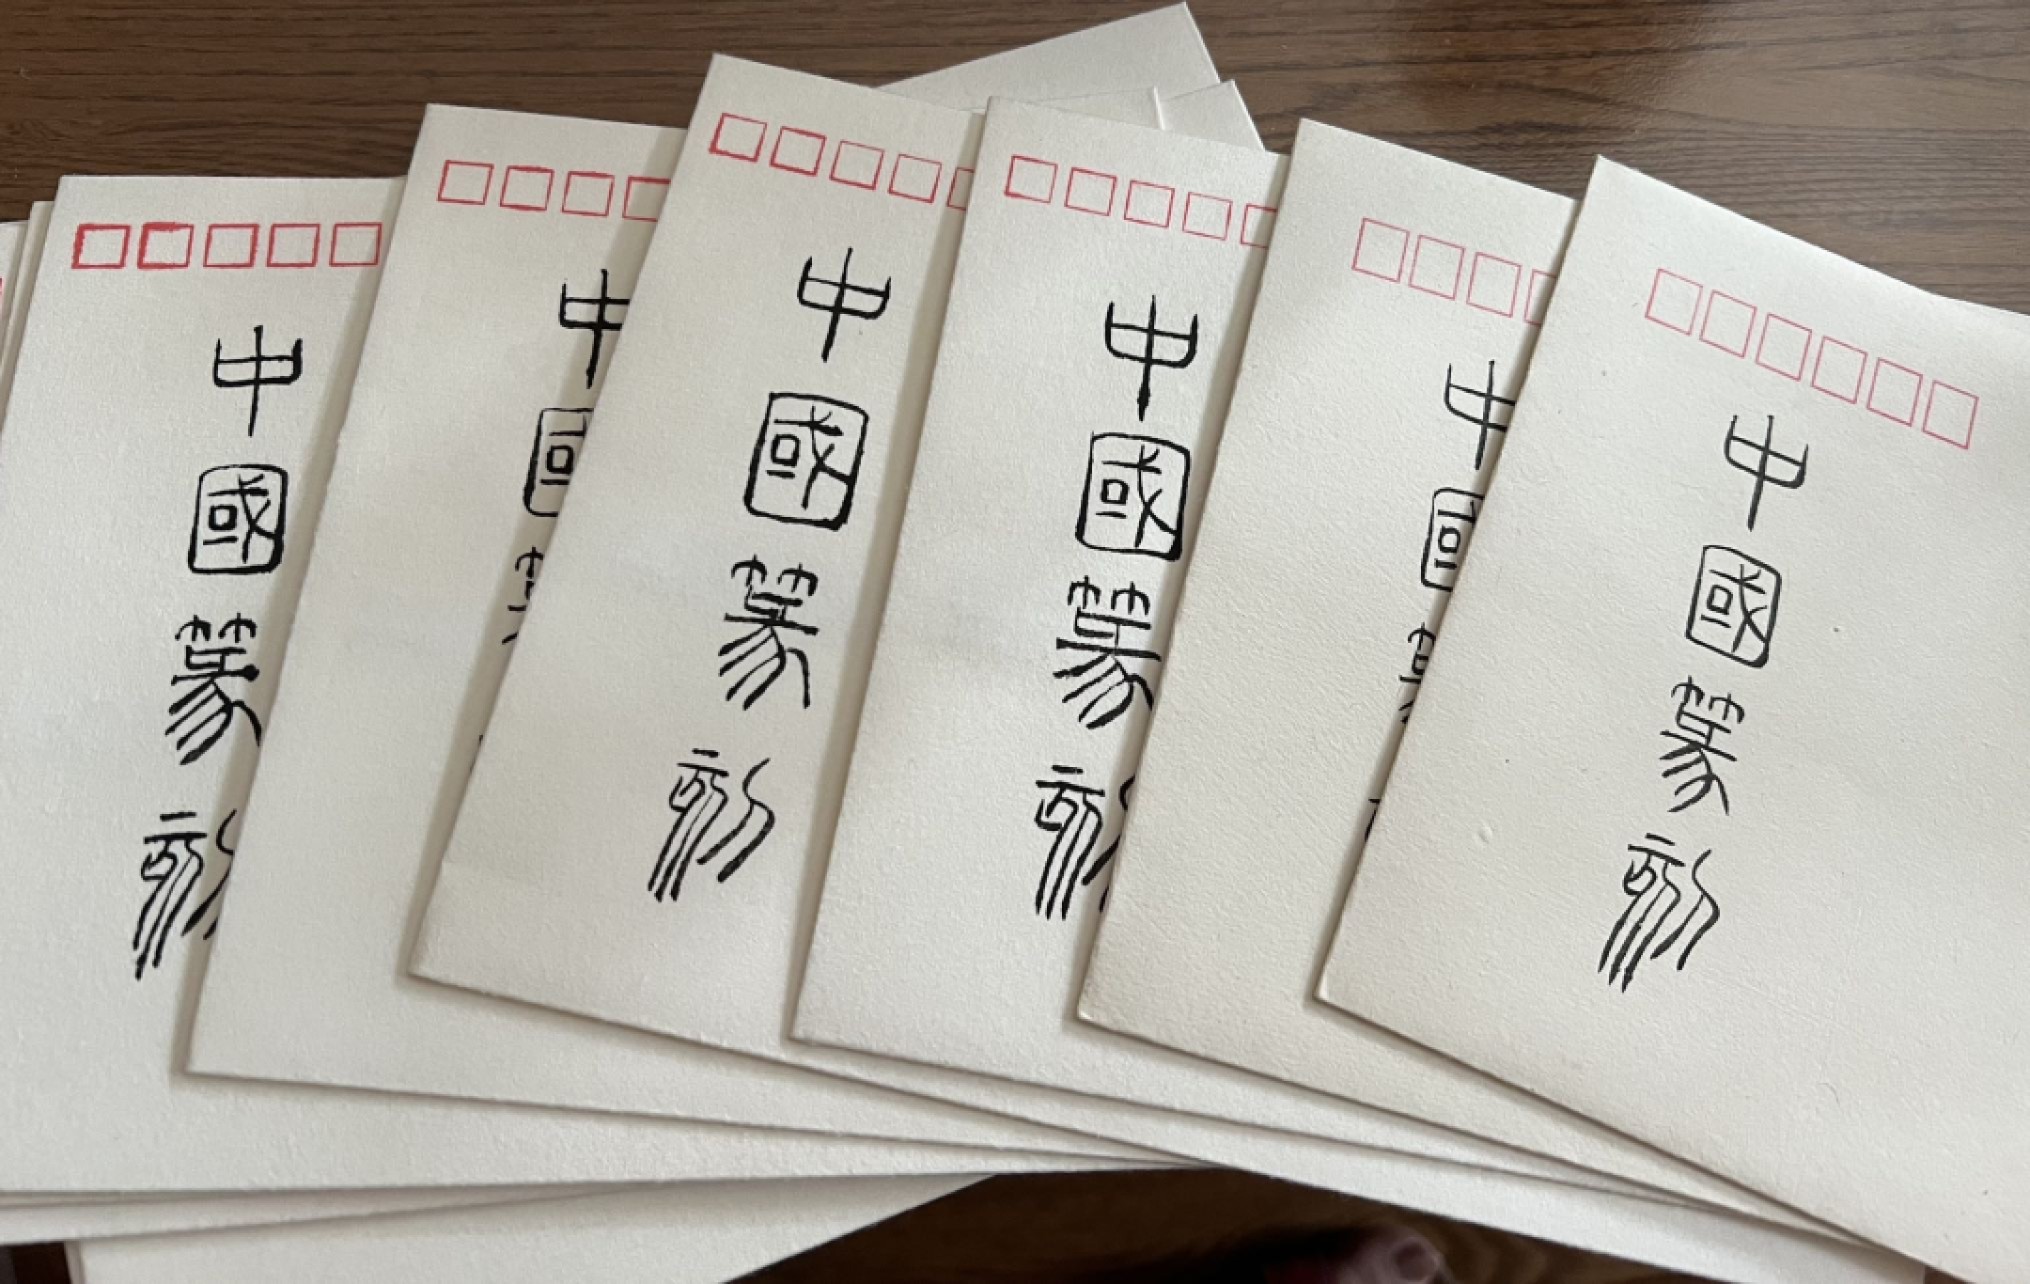 中國篆刻
中國篆
中國篆刻
中國篆刻
中國篆
中國篆刻